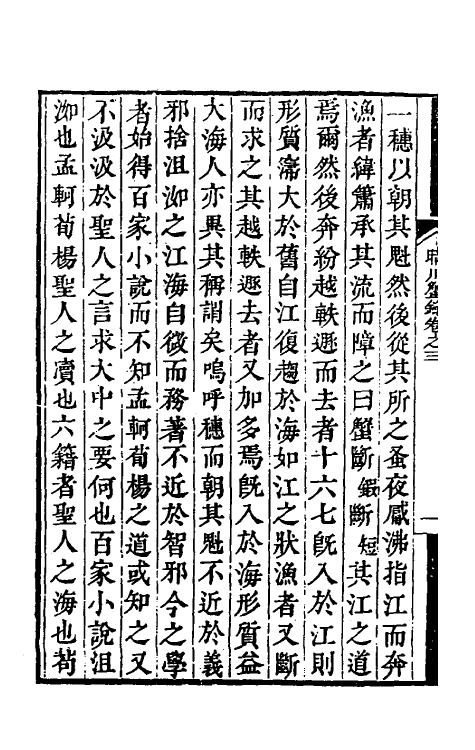 一穗以朝其魁然後從其所之蚤夜觱沸指江而奔
漁者緯簫承其流而障之曰蟹斷鍛斷短其江之道
焉爾然後奔紛越軼遯而去者十六七旣入於江則
形質寖大於舊自江復趨於海如江之狀漁者又斷
而求之其越軼遯去者又加多焉旣入於海形質益
大海人亦異其稱謂矣嗚呼穗而朝其魁不近於義
邪捨沮洳之江海自微而務著不近於智邪今之學
者始得百家小說而不知孟軻荀楊之道或知之又
不汲汲於聖人之言求大中之要何也百家小說沮
洳也孟軻荀楊聖人之瀆也六籍者聖人之海也苟
晴川蟹錄卷之三
一